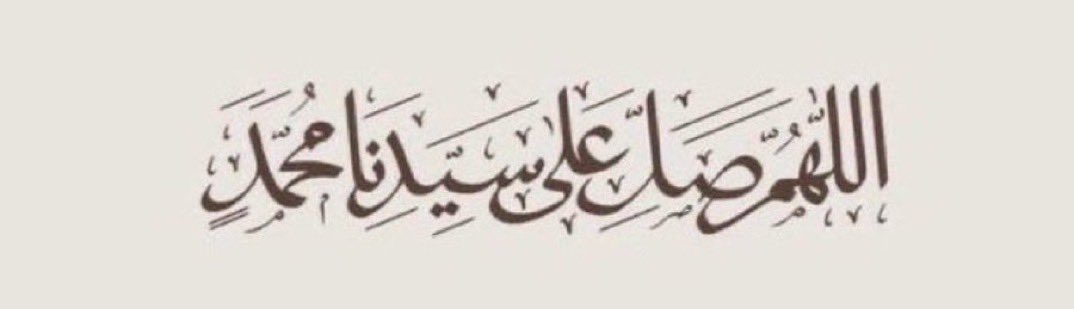 اللّٰهُمَّ صَلِّ عَلَى سَيِّدِنَا مُحَمَّدٍ